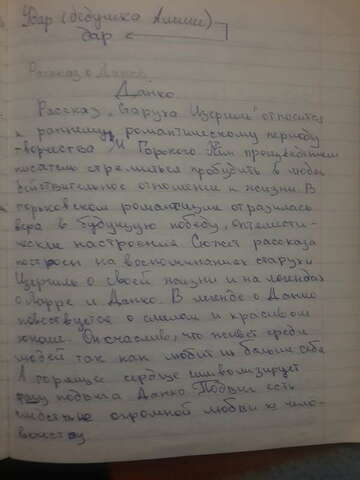 Удар (дедушка Алеши)
дар
Рассказ о Данко.
Данко
Рассказ „Старуха Изергиль" относится
к раннему романтическому периоду
творчества М Горького Этим произведением
писатель стремился пробудить в людях
действительное отношение к жизни. В
горьковском романтизме отразилась
вера в будущую победу, оптимисти-
ческие настроения. Сюжет рассказа
построен на воспоминаниях старухи
Изергиль о своей жизни и на легендах
о Ларре и Данко. В легенде о Данко
повествуется о смелом и красивом
юноше. Он счастлив, что живёт среди
людей так как любит их больше себя
А горящее сердце символизирует
подвига Данко Подвиг есть
огромной любви к чело-
вечеству.